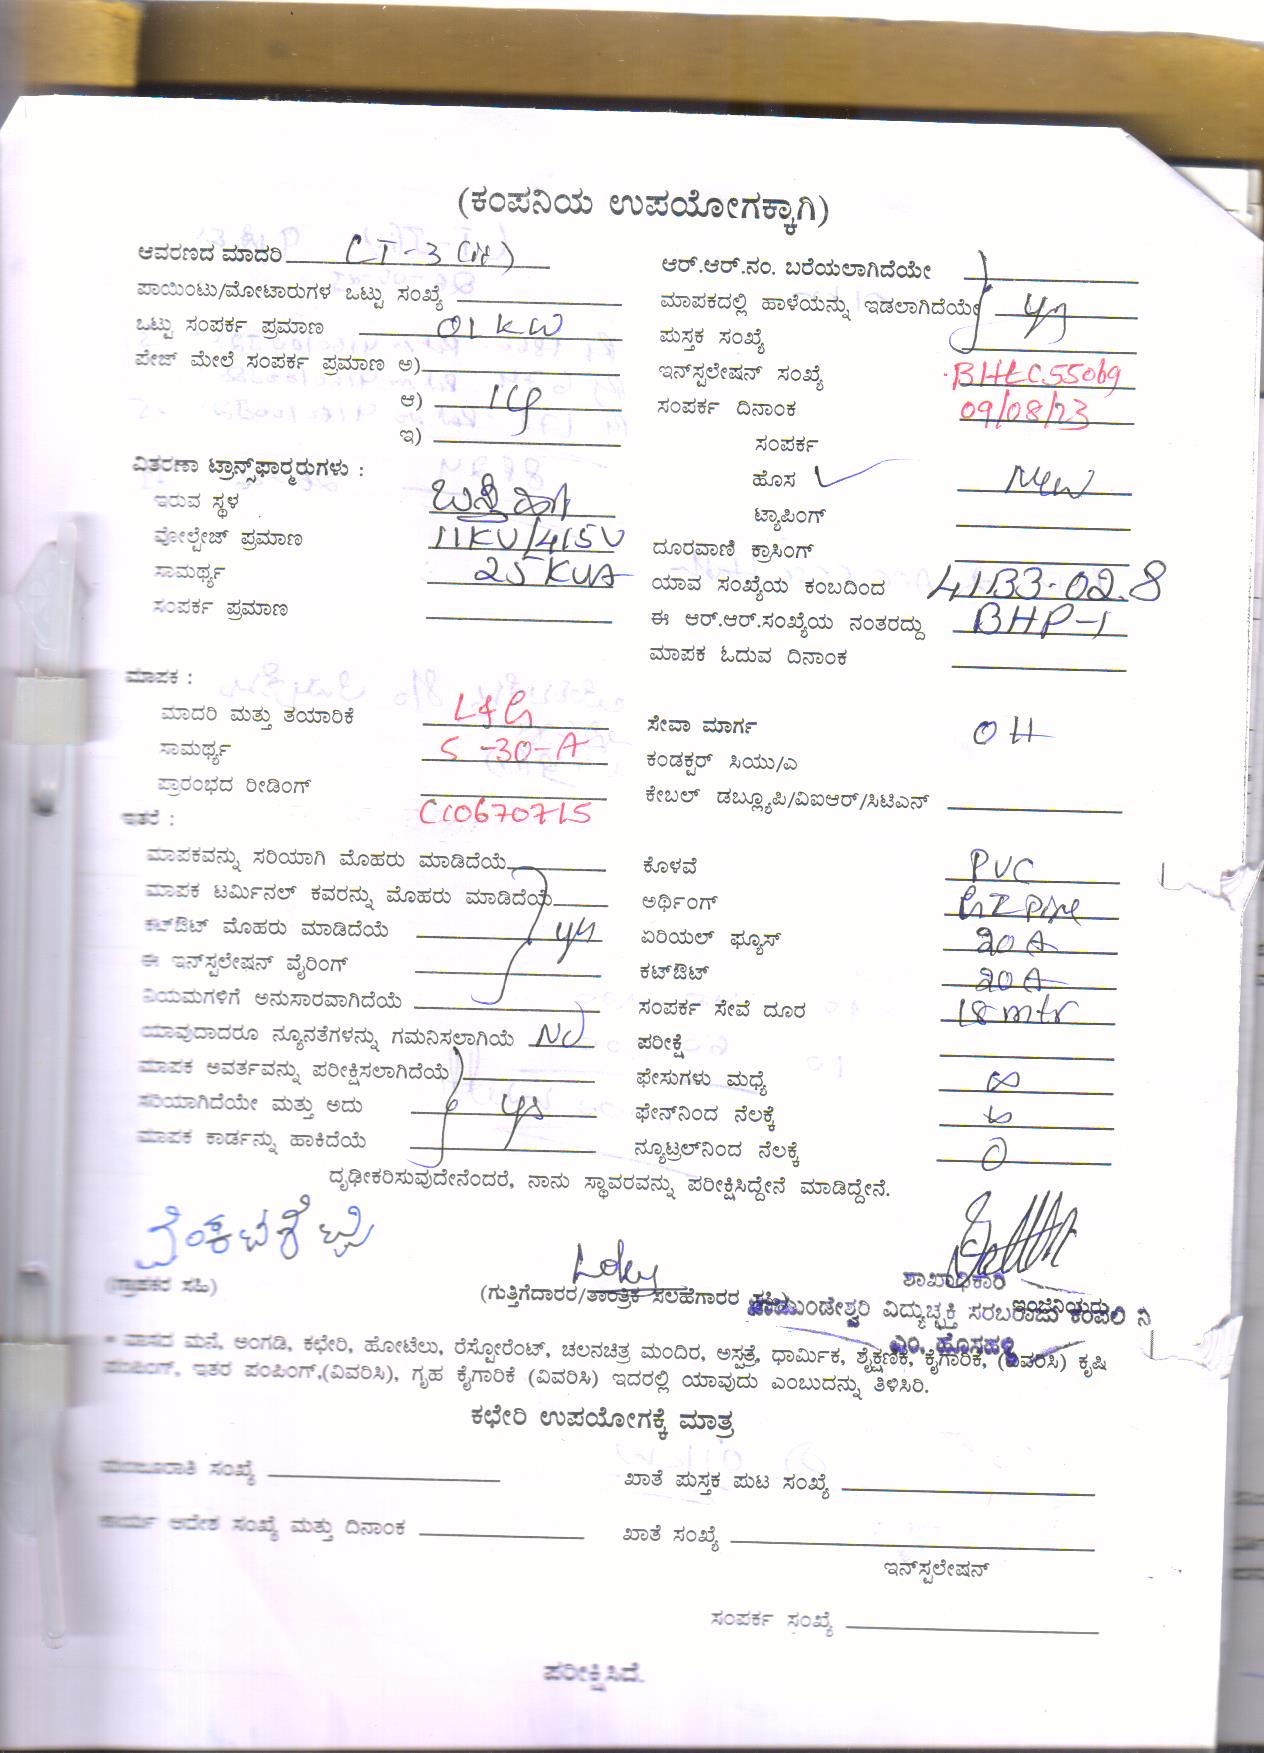 (ಕಂಪನಿಯ ಉಪಯೋಗಕ್ಕಾಗಿ)
ಆವರಣದ ಮಾದರಿ
ಪಾಯಿಂಟು/ಮೋಟಾರುಗಳ ಒಟ್ಟು ಸಂಖ್ಯೆ
ಒಟ್ಟು ಸಂಪರ್ಕ ಪ್ರಮಾಣ 01 KW
ಪೇಜ್ ಮೇಲೆ ಸಂಪರ್ಕ ಪ್ರಮಾಣ ಅ)
ಆ) 1φ
ಇ)
ವಿತರಣಾ ಟ್ರಾನ್ಸ್‌ಫಾರ್‍ಮರುಗಳು :
ಇರುವ ಸ್ಥಳ
ವೋಲ್ಟೇಜ್ ಪ್ರಮಾಣ 11KV/415V
ಸಾಮರ್ಥ್ಯ 25 KVA
ಸಂಪರ್ಕ ಪ್ರಮಾಣ
ಆರ್.ಆರ್.ನಂ. ಬರೆಯಲಾಗಿದೆಯೇ
ಮಾಪಕದಲ್ಲಿ ಹಾಳೆಯನ್ನು ಇಡಲಾಗಿದೆಯೇ yes
ಪುಸ್ತಕ ಸಂಖ್ಯೆ
ಇನ್‌ಸ್ಟಲೇಷನ್ ಸಂಖ್ಯೆ BHLC55069
ಸಂಪರ್ಕ ದಿನಾಂಕ 09/08/23
ಸಂಪರ್ಕ
ಹೊಸ ✓ New
ಟ್ಯಾಪಿಂಗ್
ದೂರವಾಣಿ ಕ್ರಾಸಿಂಗ್
ಯಾವ ಸಂಖ್ಯೆಯ ಕಂಬದಿಂದ
ಈ ಆರ್.ಆರ್.ಸಂಖ್ಯೆಯ ನಂತರದ್ದು BHP-1
ಮಾಪಕ ಓದುವ ದಿನಾಂಕ
ಮಾಪಕ :
ಮಾದರಿ ಮತ್ತು ತಯಾರಿಕೆ L&G
ಸಾಮರ್ಥ್ಯ 5-30-A
ಪ್ರಾರಂಭದ ರೀಡಿಂಗ್
CC0670715
ಸೇವಾ ಮಾರ್ಗ OH
ಕಂಡಕ್ಟರ್ ಸಿಯು/ಎ
ಕೇಬಲ್ ಡಬ್ಲ್ಯೂಪಿ/ವಿಐಆರ್/ಸಿಟಿಎನ್
ಇತರೆ :
ಮಾಪಕವನ್ನು ಸರಿಯಾಗಿ ಮೊಹರು ಮಾಡಿದೆಯೆ
ಮಾಪಕ ಟರ್ಮಿನಲ್ ಕವರನ್ನು ಮೊಹರು ಮಾಡಿದೆಯೆ
ಕಟ್‌ಔಟ್ ಮೊಹರು ಮಾಡಿದೆಯೆ yes
ಈ ಇನ್‌ಸ್ಟಲೇಷನ್ ವೈರಿಂಗ್
ನಿಯಮಗಳಿಗೆ ಅನುಸಾರವಾಗಿದೆಯೆ
ಯಾವುದಾದರೂ ನ್ಯೂನತೆಗಳನ್ನು ಗಮನಿಸಲಾಗಿಯೆ No
ಮಾಪಕ ಅವರ್ತವನ್ನು ಪರೀಕ್ಷಿಸಲಾಗಿದೆಯೆ
ಸರಿಯಾಗಿದೆಯೇ ಮತ್ತು ಅದು yes
ಮಾಪಕ ಕಾರ್ಡನ್ನು ಹಾಕಿದೆಯೆ
ಕೊಳವೆ PVC
ಅರ್ಥಿಂಗ್ GI Pipe
ಏರಿಯಲ್ ಫ್ಯೂಸ್ 20 A
ಕಟ್‌ಔಟ್ 20 A
ಸಂಪರ್ಕ ಸೇವೆ ದೂರ 18 mtr
ಪರೀಕ್ಷೆ
ಫೇಸುಗಳು ಮಧ್ಯೆ ∞
ಫೇನ್‌ನಿಂದ ನೆಲಕ್ಕೆ
ನ್ಯೂಟ್ರಲ್‌ನಿಂದ ನೆಲಕ್ಕೆ 0
ದೃಢೀಕರಿಸುವುದೇನೆಂದರೆ, ನಾನು ಸ್ಥಾವರವನ್ನು ಪರೀಕ್ಷಿಸಿದ್ದೇನೆ ಮಾಡಿದ್ದೇನೆ.
ವೆಂಕಟಶೆಟ್ಟಿ
(ಗ್ರಾಹಕರ ಸಹಿ)
(ಗುತ್ತಿಗೆದಾರರ/ತಾಂತ್ರಿಕ ಸಲಹೆಗಾರರ ಸಹಿ)
ಶಾಖಾಧಿಕಾರಿ
ಇಂಜಿನಿಯರು
ಚಾಮುಂಡೇಶ್ವರಿ ವಿದ್ಯುಚ್ಛಕ್ತಿ ಸರಬರಾಜು ಕಂಪನಿ ನಿ
ಎಂ. ಹೊಸಹಳ್ಳಿ
* ವಾಸದ ಮನೆ, ಅಂಗಡಿ, ಕಛೇರಿ, ಹೋಟೆಲು, ರೆಸ್ಟೋರೆಂಟ್, ಚಲನಚಿತ್ರ ಮಂದಿರ, ಅಸ್ಪತ್ರೆ, ಧಾರ್ಮಿಕ, ಶೈಕ್ಷಣಿಕ, ಕೈಗಾರಿಕೆ, (ವಿವರಿಸಿ) ಕೃಷಿ
ಪಂಪಿಂಗ್, ಇತರ ಪಂಪಿಂಗ್,(ವಿವರಿಸಿ), ಗೃಹ ಕೈಗಾರಿಕೆ (ವಿವರಿಸಿ) ಇದರಲ್ಲಿ ಯಾವುದು ಎಂಬುದನ್ನು ತಿಳಿಸಿರಿ.
ಕಛೇರಿ ಉಪಯೋಗಕ್ಕೆ ಮಾತ್ರ
ಮಂಜೂರಾತಿ ಸಂಖ್ಯೆ
ಖಾತೆ ಪುಸ್ತಕ ಪುಟ ಸಂಖ್ಯೆ
ಕಾರ್ಯ ಆದೇಶ ಸಂಖ್ಯೆ ಮತ್ತು ದಿನಾಂಕ
ಖಾತೆ ಸಂಖ್ಯೆ
ಇನ್‌ಸ್ಟಲೇಷನ್
ಸಂಪರ್ಕ ಸಂಖ್ಯೆ
ಪರೀಕ್ಷಿಸಿದೆ.